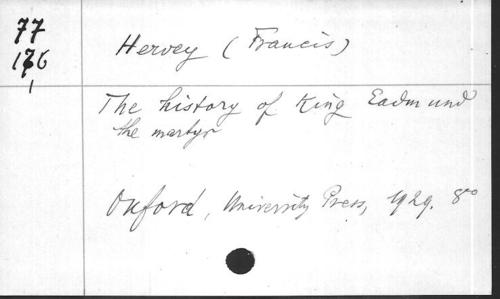 77
176
1
Hervey (Francis)
The history of King Eadmund
the martyr
Oxford, University Press, 1929. 8°